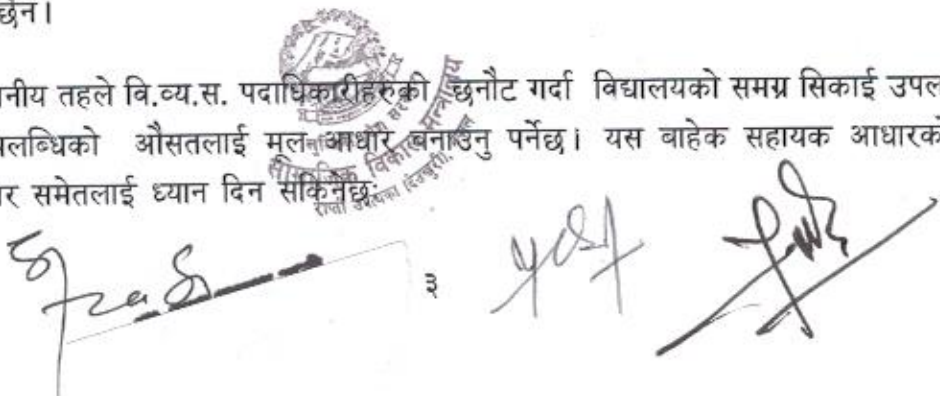 छैन।
नीय तहले वि.व्य.स. पदाधिकारीहरुको छनौट गर्दा विद्यालयको समग्र सिकाई उपल
लब्धिको औसतलाई मूल आधार बनाउनु पर्नेछ। यस बाहेक सहायक आधारको
र समेतलाई ध्यान दिन सकिनेछः
सामाजिक विकास मन्त्रालय
३